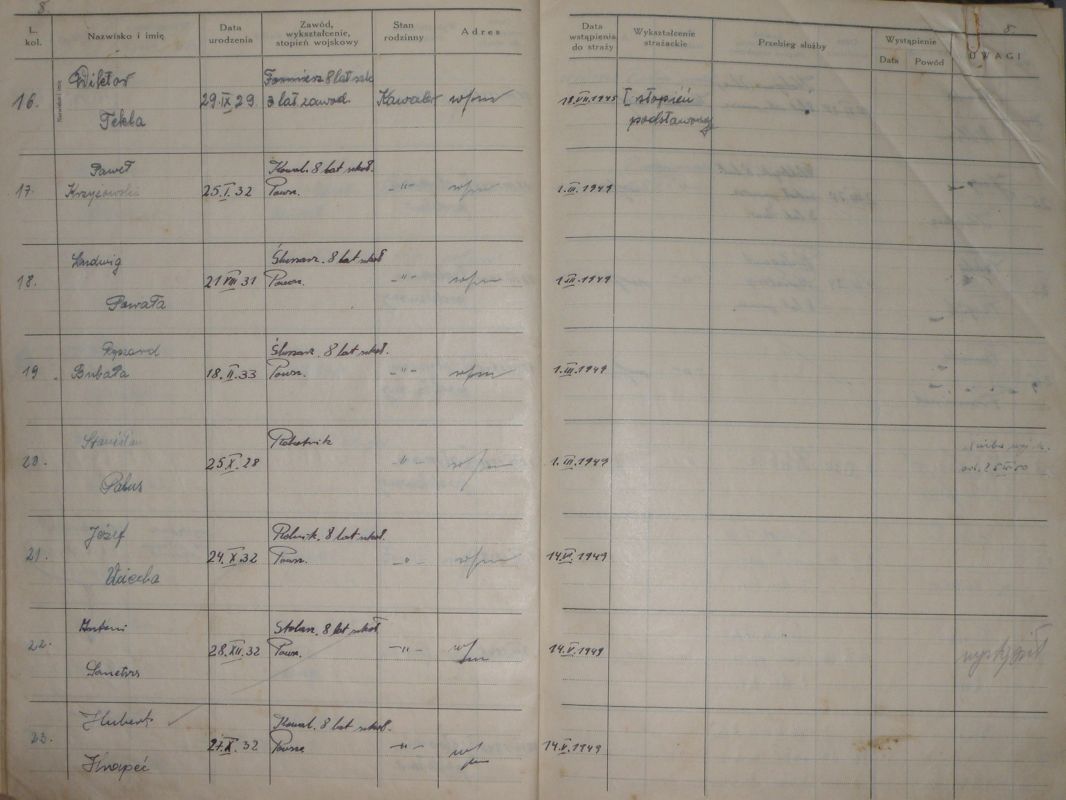 8.
L. kol.
Nazwisko i imię
Data urodzenia
Zawód, wykształcenie, stopień wojskowy
Stan rodzinny
Adres
Data wstąpienia do straży
Wykształcenie strażackie
Przebieg służby
Wystąpienie
Data
Powód
UWAGI
16.
Nazwisko i imię
Wiktor
Tekla
29.IX 29
8 lat szk.
3 lat zawod.
Kawaler
w/m
18.VII.1945
I stopień
podstawowy
17.
Paweł
25.I.32
Kowal. 8 lat szkoł.
Powsz.
-"-
w/m
1.III.1949
18.
Ludwig
Pawała
21 VIII 31
Ślusarz. 8 lat szkoł
Powsz.
-"-
w/m
1.III.1949
19.
Ryszard
Bubała
18.II.33
Ślusarz. 8 lat szkoł.
Powsz.
-"-
w/m
1.III.1949
20.
Stanisław
Palus
25 X 28
Robotnik
-"-
w/m
1.III.1949
21.
Józef
Uciecha
24.X.32
Rolnik. 8 lat szkoł.
Powsz.
-"-
w/m
14.V.1949
22.
Antoni
28.XII.32
Stolarz. 8 lat szkoł
Powsz.
-"-
w/m
14.V.1949
wystąpił
23.
Hubert
Knapeć
27.X.32
Kowal. 8 lat szkoł.
Powsz.
-"-
w/m
14.V.1949